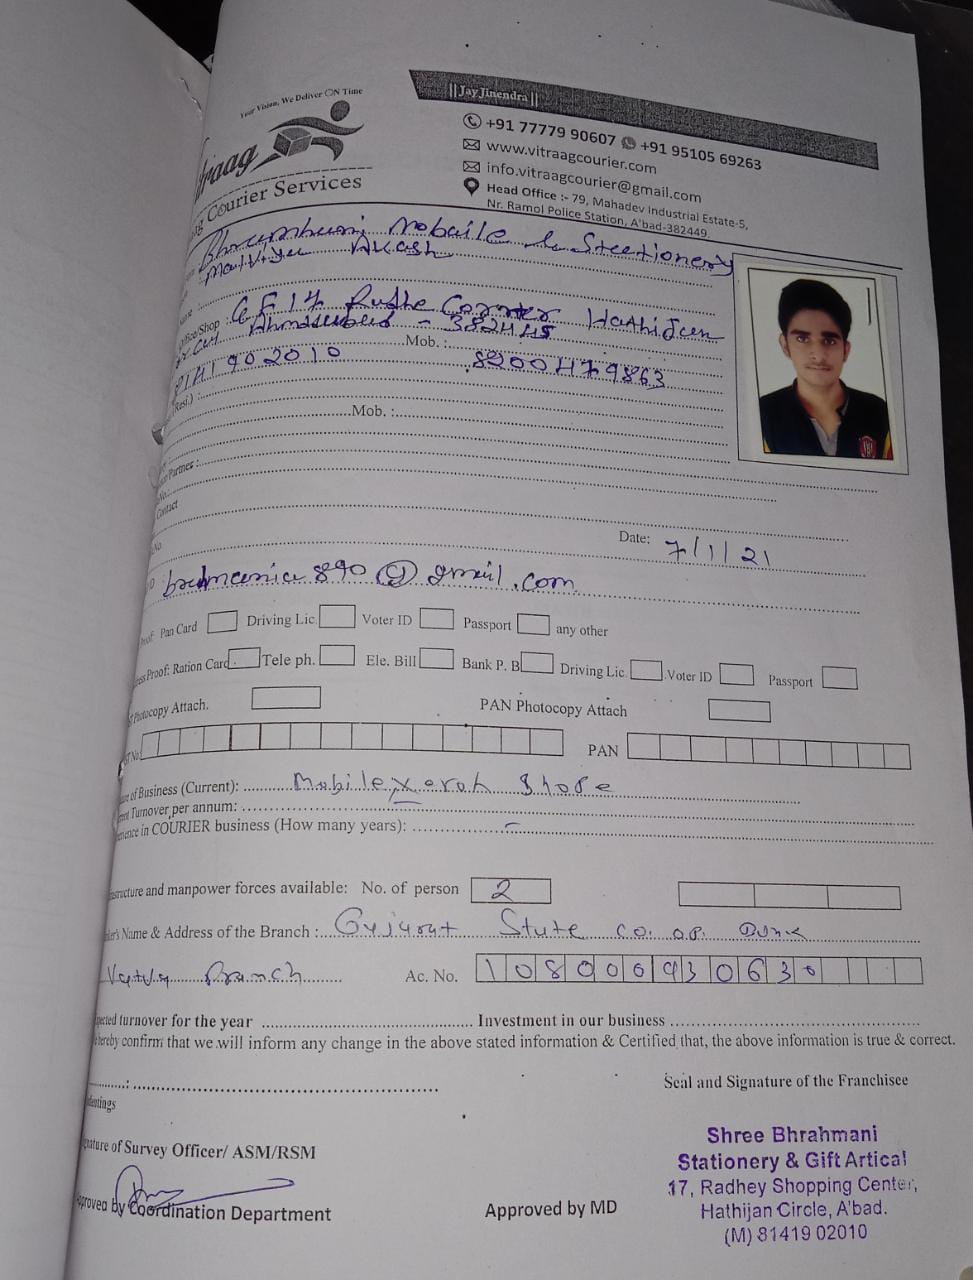 Your Vision, We Deliver ON Time
|| Jay Jinendra ||
raag
Courier Services
+91 77779 90607 +91 95105 69263
www.vitraagcourier.com
info.vitraagcourier@gmail.com
Head Office :- 79, Mahadev Industrial Estate-5,
Nr. Ramol Police Station, A'bad-382449.
Mobaile & Steetionery
Akash
Office/Shop : GF 17 Hathijan
- 382445
902010 Mob. : 8200479863
(Resi.) :
Mob. :
Partner :
No.:
Contact
No. Date: 7/1/21
890@gmail.com
Proof: Pan Card Driving Lic. Voter ID Passport any other
ess Proof: Ration Card Tele ph. Ele. Bill Bank P. B Driving Lic. Voter ID Passport
Photocopy Attach. PAN Photocopy Attach
ST No. PAN
ure of Business (Current): Mobile, Xerox Shope
Turnover per annum:
ience in COURIER business (How many years): -
structure and manpower forces available: No. of person 2
ker's Name & Address of the Branch : Gujarat State co. op. Bank
Vatva Branch Ac. No. 108000930630
pected turnover for the year Investment in our business
hereby confirm that we will inform any change in the above stated information & Certified that, the above information is true & correct.
Seal and Signature of the Franchisee
gnature of Survey Officer/ ASM/RSM
Approved by Coordination Department
Approved by MD
Shree Bhrahmani
Stationery & Gift Artical
17, Radhey Shopping Center,
Hathijan Circle, A'bad.
(M) 81419 02010